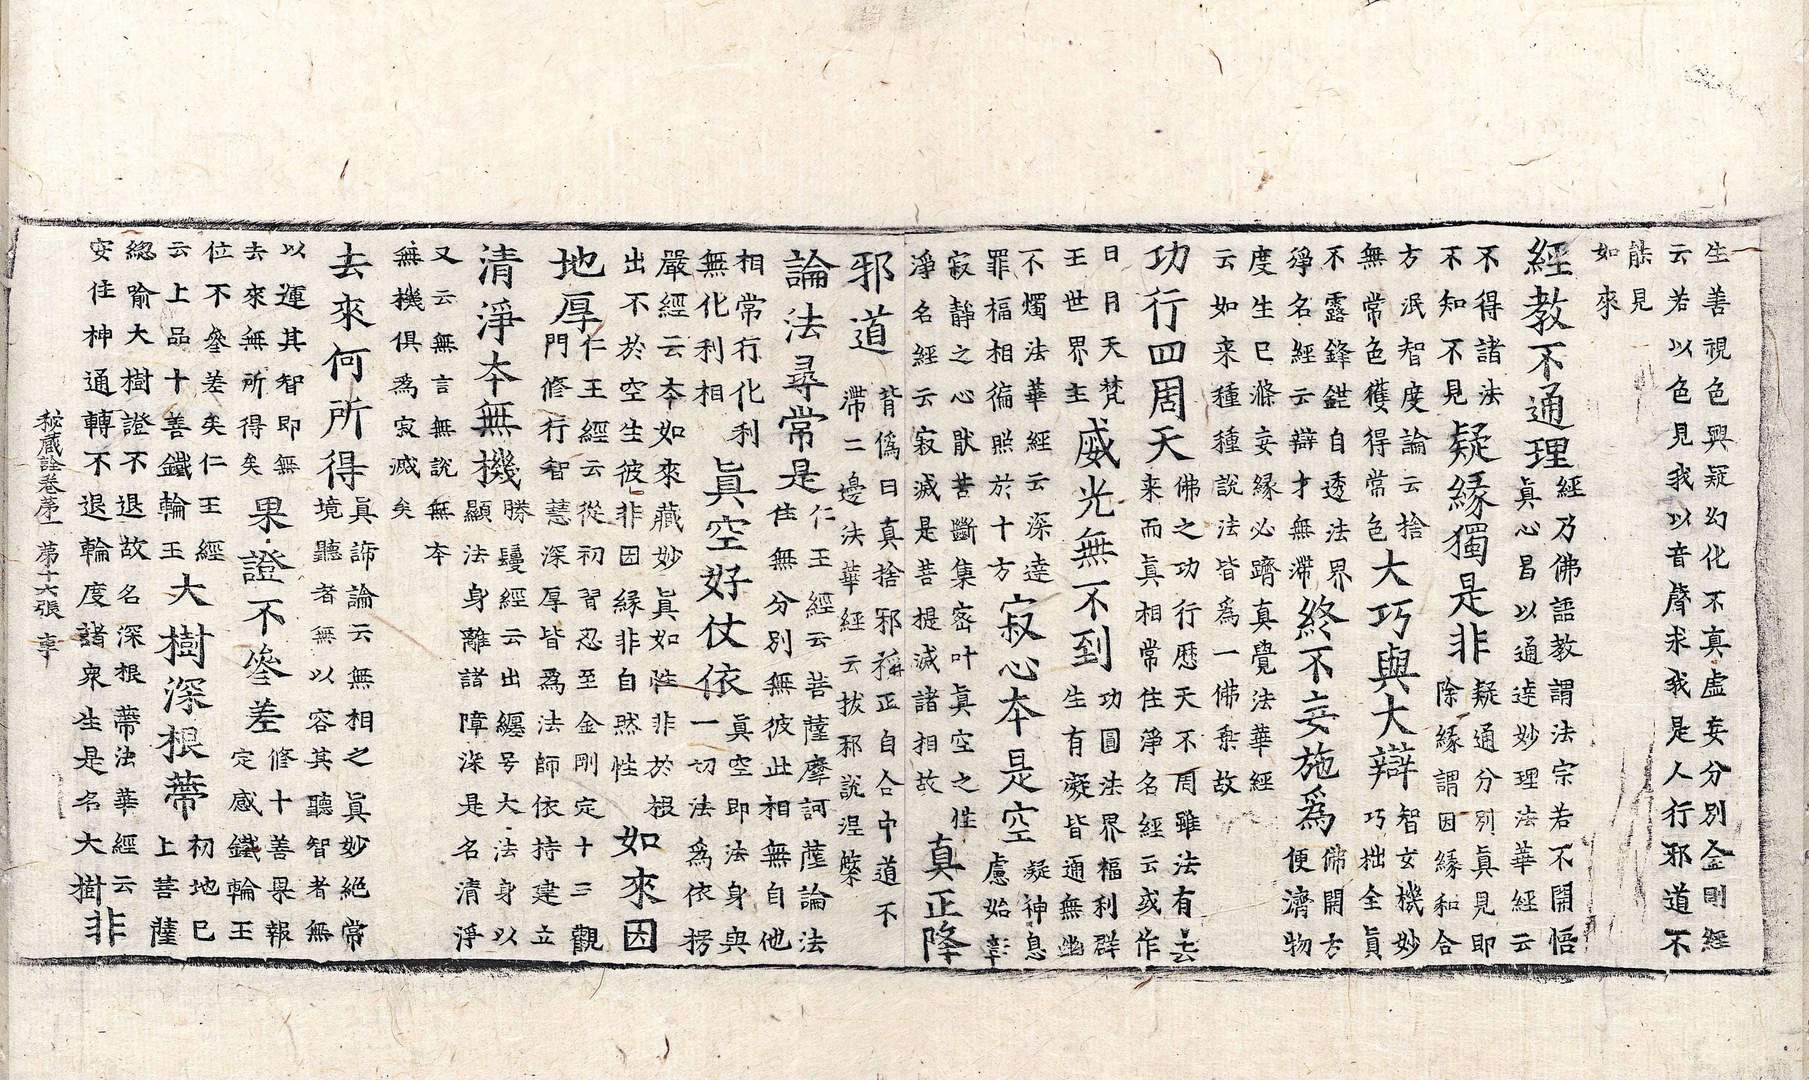 生善視色興疑幻化不真虛妄分別金剛經
云若以色見我以音聲求我是人行邪道不
能見
如來
經教不通理
經乃佛語教謂法宗若不開悟
真心昌以通達妙理法華經云
不得諸法
不知不見
疑緣獨是非
疑通分別真見即
除緣謂因緣和合
方泯智度論云捨
無常色獲得常色
大巧與大辯
智玄機妙
巧拙全真
不露鋒鋩自透法界
淨名經云辯才無滯
終不妄施爲
佛開方
便濟物
度生已滌妄緣必躋真覺法華經
云如来種種說法皆爲一佛乘故
功行四周天
佛之功行歷天不周雖法有去
来而真相常住淨名經云或作
日月天梵
王世界主
威光無不到
功圓法界福利群
生有礙皆通無幽
不燭法華經云深達
罪福相徧照於十方
寂心本是空
凝神息
慮始彰
寂靜之心猒苦斷集密叶真空之性
淨名經云寂滅是菩提滅諸相故
真正降
邪道
背偽曰真捨邪稱正自合中道不
滯二邊法華經云拔邪說涅槃
論法尋常是
仁王經云菩薩摩訶薩論法
住無分別無彼此相無自他
相常行化利
無化利相
眞空好仗依
真空即法身與
一切法爲依楞
嚴經云本如來藏妙眞如性非於根
出不於空生彼非因緣非自然性
如來因
地厚
仁王經云從初習忍至金剛定十三觀
門修行智慧深厚皆爲法師依持建立
清淨本無機
勝鬘經云出纏号大法身以
顯法身離諸障深是名清淨
又云無言無說無本
無機俱爲寂滅矣
去來何所得
真諦論云無相之眞妙絕常
境聽者無以容其聽智者無
以運其智即無
去來無所得矣
果證不參差
修十善果報
定感鐵輪王
位不參差矣仁王經
云上品十善鐵輪王
大樹深根蔕
初地已
上菩薩
総喻大樹證不退故名深根蔕法華經云
安住神通轉不退輪度諸衆生是名大樹
非
秘藏詮卷第一 第十六張 㐭